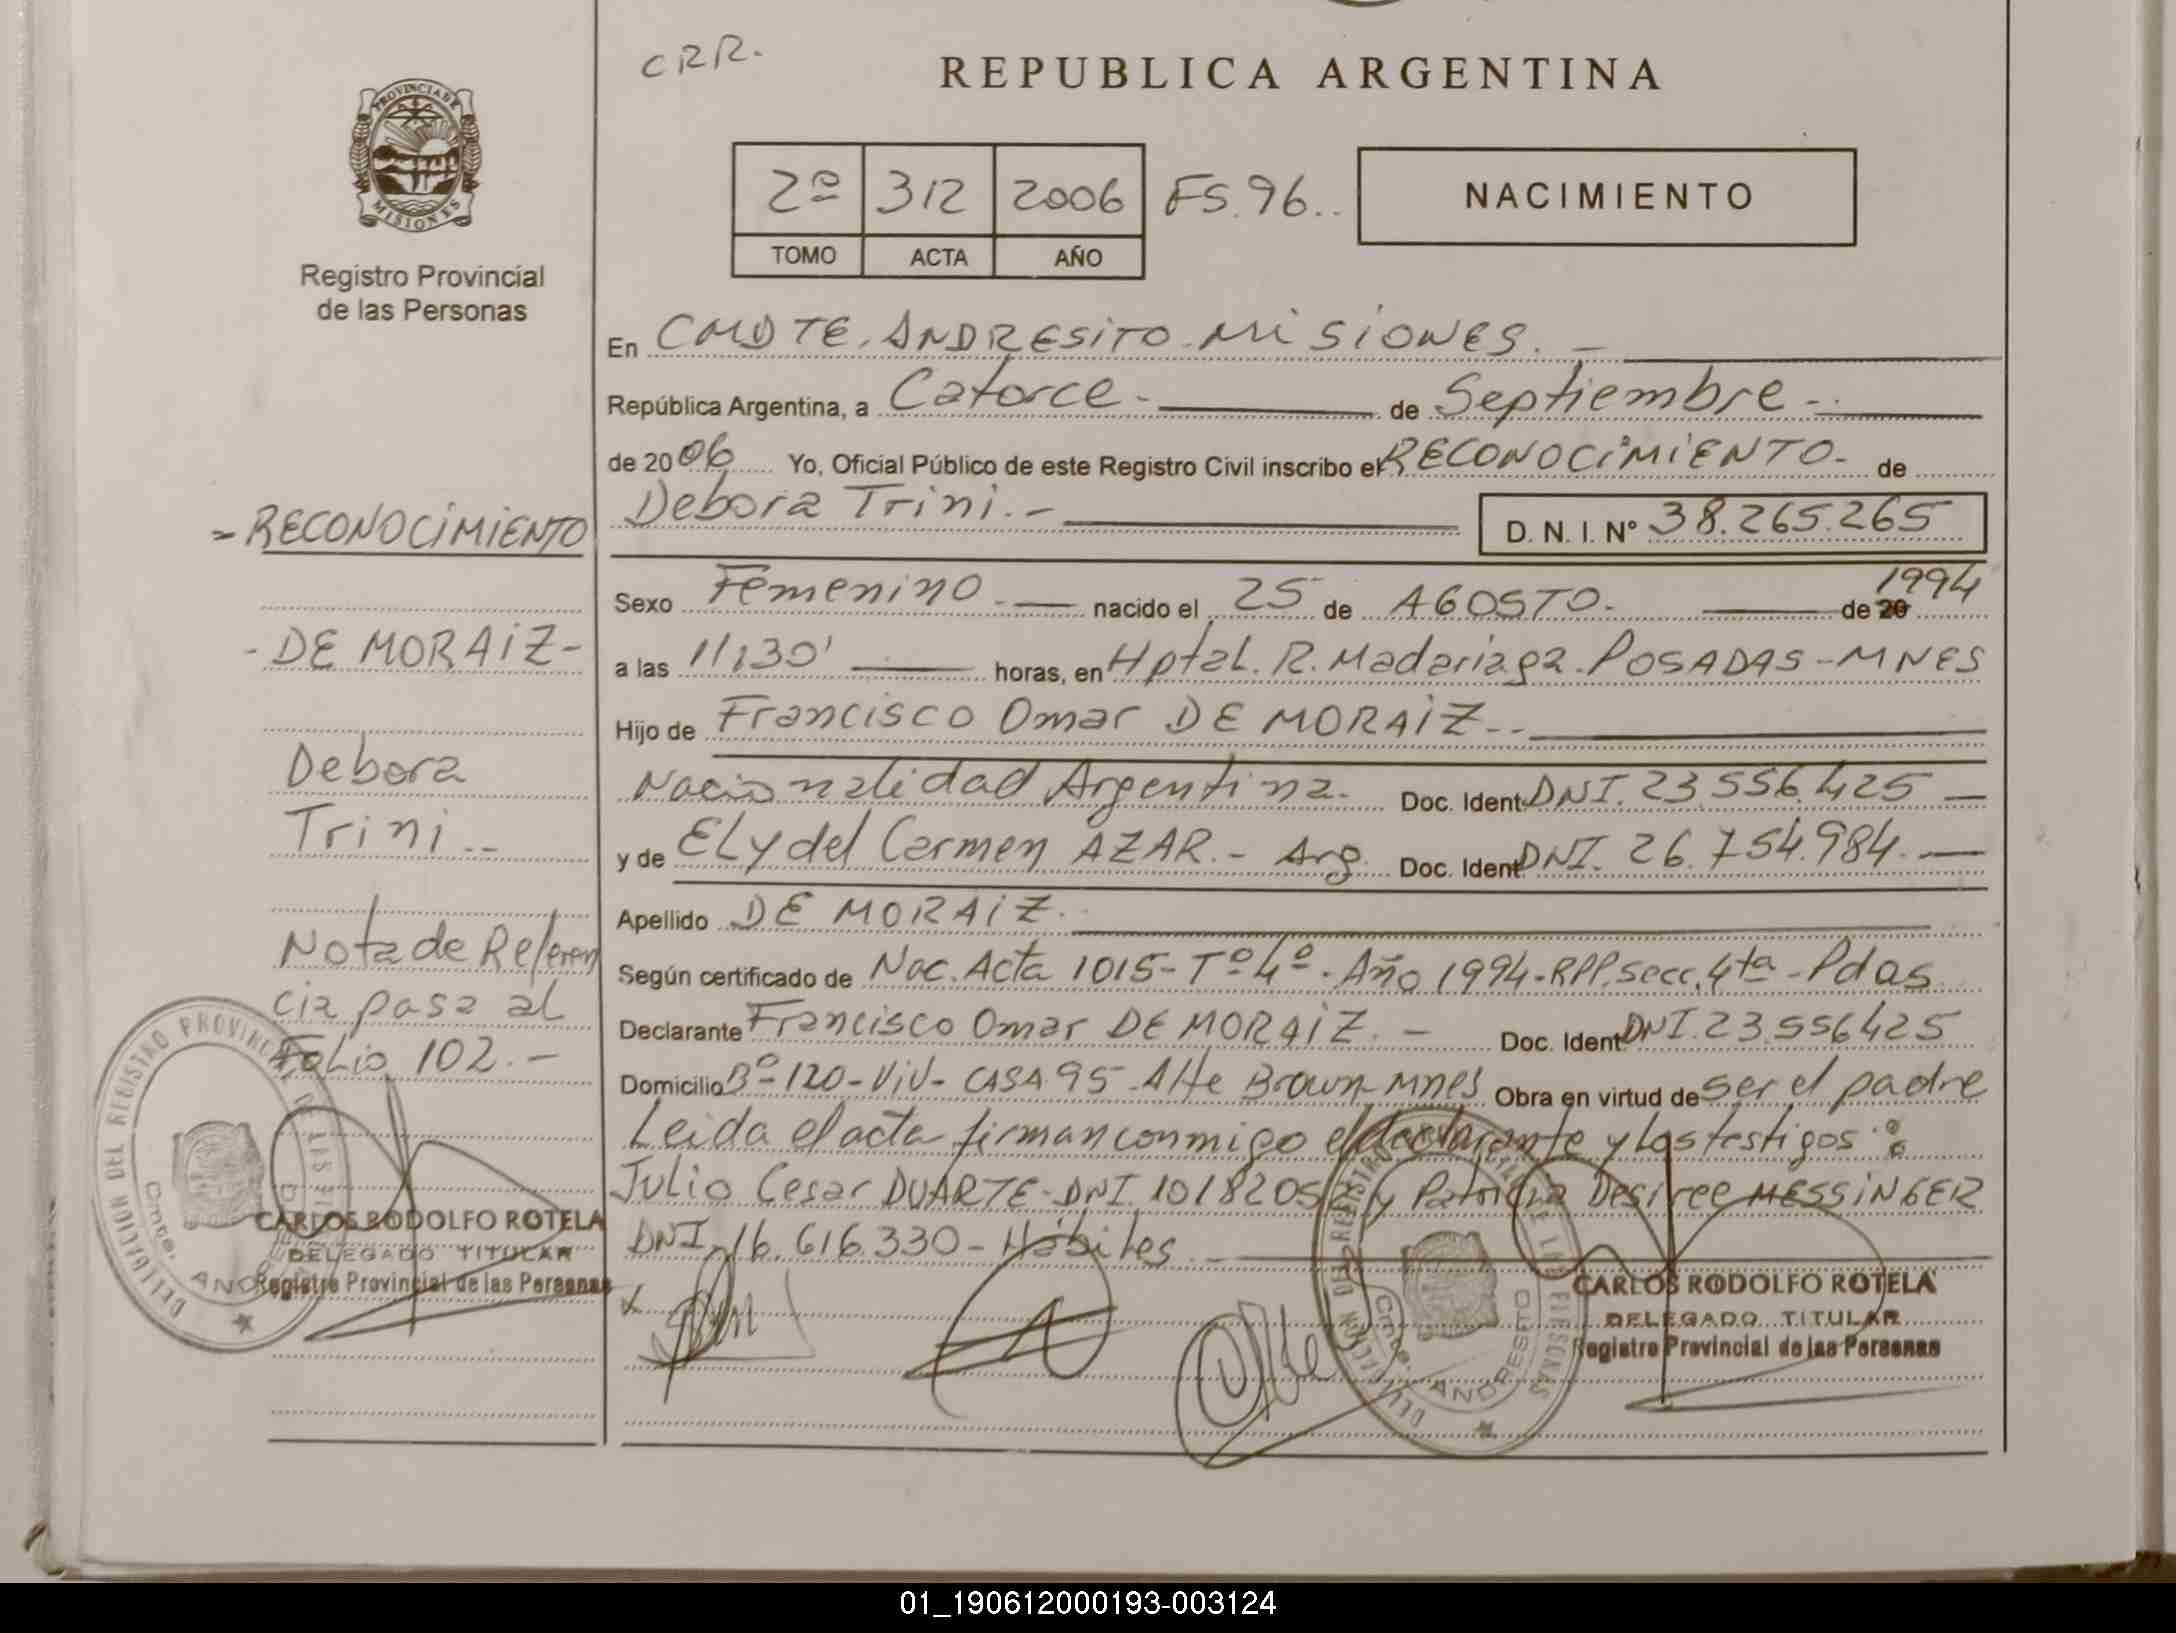 CRR.
REPUBLICA ARGENTINA
PROVINCIA DE
MISIONES
Registro Provincial
de las Personas
2º 312 2006 FS. 96..
TOMO ACTA AÑO
NACIMIENTO
En CMDTE. ANDRESITO - MISIONES. -
República Argentina, a Catorce - de Septiembre -.
de 2006 Yo, Oficial Público de este Registro Civil inscribo el RECONOCIMIENTO - de
Debora Trini. - D. N. I. Nº 38.265.265
Sexo Femenino - nacido el 25 de AGOSTO. de 20 1994
a las 11,30' horas, en Hptal. R. Madariaga - POSADAS - MNES
Hijo de Francisco Omar DE MORAIZ - -
Nacionalidad Argentina - Doc. Ident. DNI. 23.556.425 -
y de ELy del Carmen AZAR. - Arg. Doc. Ident. DNI. 26.754.984. -
Apellido DE MORAIZ.
Según certificado de Nac. Acta 1015 - Tº 4º - Año 1994 - RPP. secc. 4ta - Pdas
Declarante Francisco Omar DE MORAIZ. - Doc. Ident. DNI. 23.556425
Domicilio Bº 120 - Viv - CASA 95 - Alte Brown - Mnes Obra en virtud de ser el padre
Leida el acta firman conmigo el declarante y los testigos :
Julio Cesar DUARTE - DNI. 10182052 y Patricia Desiree MESSINGER
DNI. 16.616.330 - Hábiles
CARLOS RODOLFO ROTELA
DELEGADO TITULAR
Registro Provincial de las Personas
DELEGACION DEL REGISTRO PROVINCIAL DE LAS PERSONAS
Cmte. ANDRESITO
- RECONOCIMIENTO
- DE MORAIZ -
Debora
Trini - -
Nota de Referen
cia pasa al
Folio 102. -
CARLOS RODOLFO ROTELA
DELEGADO TITULAR
Registro Provincial de las Personas
DELEGACION DEL REGISTRO PROVINCIAL DE LAS
Cmte. ANDRESITO
01_190612000193-003124